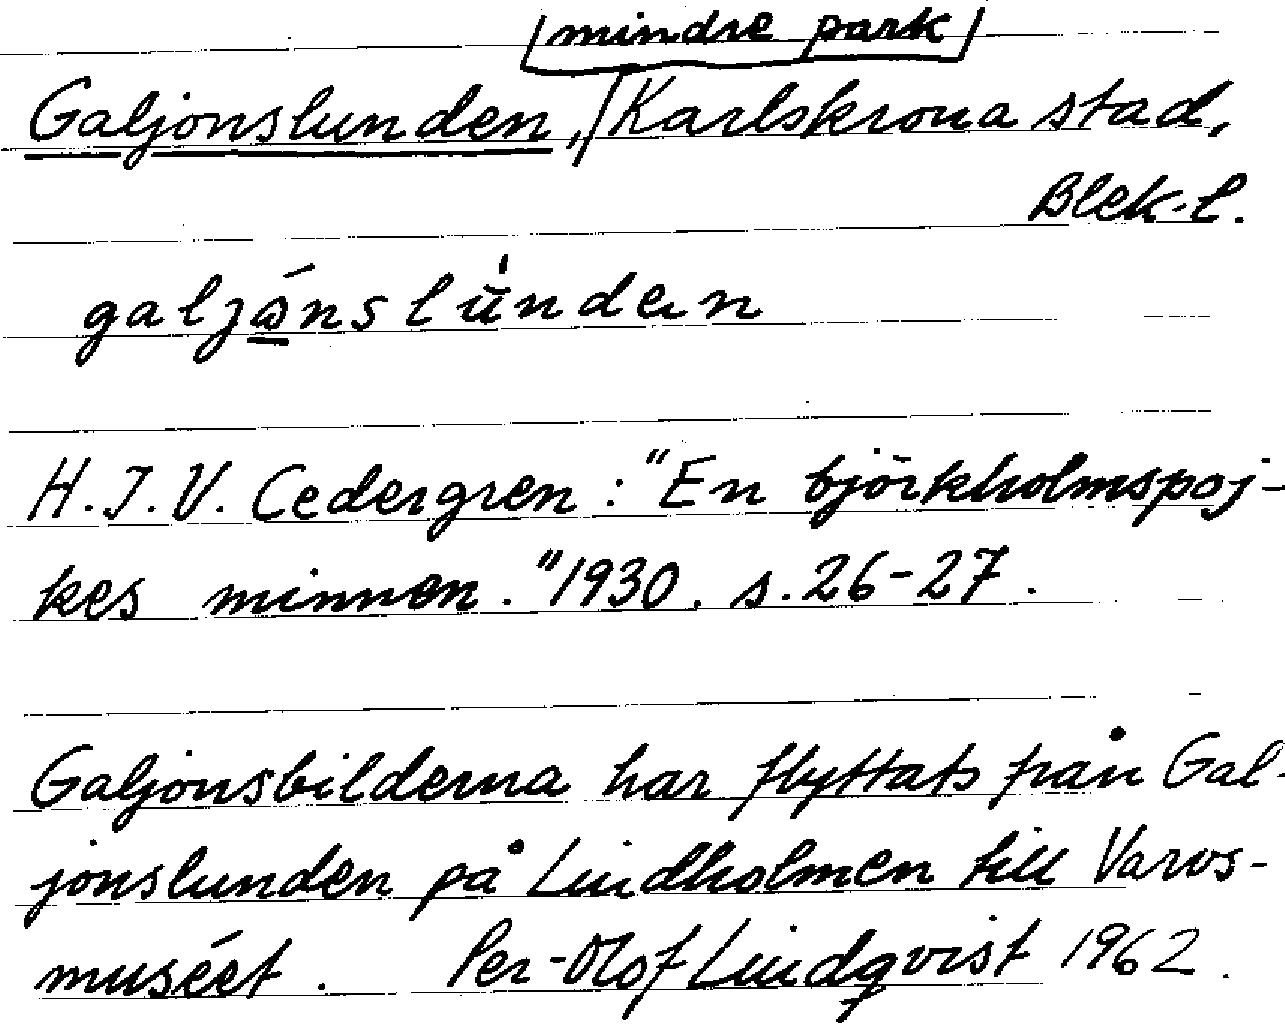 mindre park
Galjonslunden, Karlskrona stad,
Blek. l.
galjónslu̇nden
H. J. V. Cedergren : "En björkholmspoj-
kes minnen." 1930. s. 26-27.
Galjonsbilderna har flyttats från Gal-
jonslunden på Lindholmen till Varvs-
muséet. Per-Olof Lindqvist 1962.